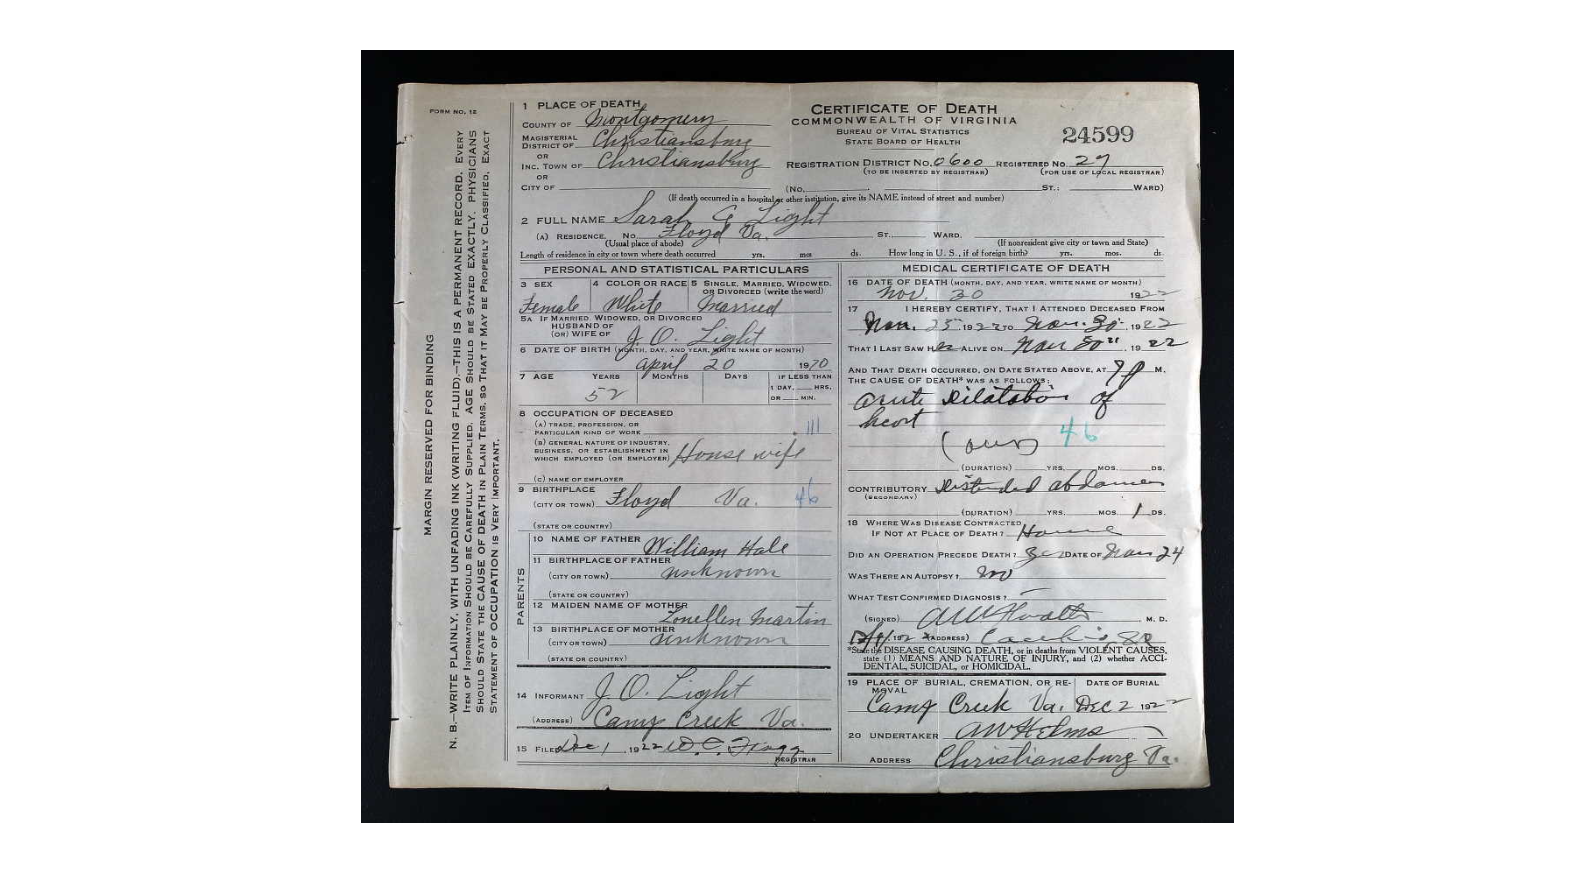 FORM NO. 12
MARGIN RESERVED FOR BINDING
N. B.—WRITE PLAINLY, WITH UNFADING INK (WRITING FLUID).—THIS IS A PERMANENT RECORD. EVERY
ITEM OF INFORMATION SHOULD BE CAREFULLY SUPPLIED. AGE SHOULD BE STATED EXACTLY. PHYSICIANS
SHOULD STATE THE CAUSE OF DEATH IN PLAIN TERMS, SO THAT IT MAY BE PROPERLY CLASSIFIED. EXACT
STATEMENT OF OCCUPATION IS VERY IMPORTANT.
1 PLACE OF DEATH
COUNTY OF Montgomery
MAGISTERIAL DISTRICT OF Christiansburg
OR
INC. TOWN OF Christiansburg
OR
CITY OF
CERTIFICATE OF DEATH
COMMONWEALTH OF VIRGINIA
BUREAU OF VITAL STATISTICS
STATE BOARD OF HEALTH
24599
REGISTRATION DISTRICT NO. 0600 REGISTERED NO. 27
(TO BE INSERTED BY REGISTRAR) (FOR USE OF LOCAL REGISTRAR)
(NO. ST.; WARD)
(If death occurred in a hospital or other institution, give its NAME instead of street and number)
2 FULL NAME Sarah Light
(A) RESIDENCE. NO. Floyd Va. ST. WARD.
(Usual place of abode) (If nonresident give city or town and State)
Length of residence in city or town where death occurred yrs. mos ds. How long in U. S., if of foreign birth? yrs. mos. ds.
PERSONAL AND STATISTICAL PARTICULARS
3 SEX 4 COLOR OR RACE 5 SINGLE, MARRIED, WIDOWED, OR DIVORCED (write the word)
Female White Married
5A IF MARRIED, WIDOWED, OR DIVORCED
HUSBAND OF
(OR) WIFE OF J. O. Light
6 DATE OF BIRTH (MONTH, DAY, AND YEAR, WRITE NAME OF MONTH)
April 20 1970
7 AGE YEARS MONTHS DAYS IF LESS THAN
1 DAY, HRS.
OR MIN.
52
8 OCCUPATION OF DECEASED
(A) TRADE, PROFESSION, OR
PARTICULAR KIND OF WORK
111
(B) GENERAL NATURE OF INDUSTRY,
BUSINESS, OR ESTABLISHMENT IN
WHICH EMPLOYED (OR EMPLOYER) House wife
(C) NAME OF EMPLOYER
9 BIRTHPLACE
(CITY OR TOWN) Floyd Va. 46
(STATE OR COUNTRY)
PARENTS
10 NAME OF FATHER William Hale
11 BIRTHPLACE OF FATHER
(CITY OR TOWN) unknown
(STATE OR COUNTRY)
12 MAIDEN NAME OF MOTHER
Louellen Martin
13 BIRTHPLACE OF MOTHER
(CITY OR TOWN) unknown
(STATE OR COUNTRY)
14 INFORMANT J. O. Light
(ADDRESS) Camp Creek Va.
15 FILED Dec 1, 1922
REGISTRAR
MEDICAL CERTIFICATE OF DEATH
16 DATE OF DEATH (MONTH, DAY, AND YEAR, WRITE NAME OF MONTH)
Nov. 30 1922
17 I HEREBY CERTIFY, THAT I ATTENDED DECEASED FROM
Nov. 25 1922 TO Nov. 30, 1922
THAT I LAST SAW HER ALIVE ON Nov 30, 1922
AND THAT DEATH OCCURRED, ON DATE STATED ABOVE, AT 9 P M.
THE CAUSE OF DEATH* WAS AS FOLLOWS:
acute dilatation of
heart
46
(DURATION) YRS. MOS. DS.
CONTRIBUTORY distended abdomen
(SECONDARY)
(DURATION) YRS. MOS. 1 DS.
18 WHERE WAS DISEASE CONTRACTED
IF NOT AT PLACE OF DEATH? Home
DID AN OPERATION PRECEDE DEATH? Yes DATE OF Nov 24
WAS THERE AN AUTOPSY? no
WHAT TEST CONFIRMED DIAGNOSIS?
(SIGNED) M. D.
192 (ADDRESS)
*State the DISEASE CAUSING DEATH, or in deaths from VIOLENT CAUSES,
state (1) MEANS AND NATURE OF INJURY, and (2) whether ACCI-
DENTAL, SUICIDAL, or HOMICIDAL.
19 PLACE OF BURIAL, CREMATION, OR RE-MOVAL DATE OF BURIAL
Camp Creek Va. Dec 2 1922
20 UNDERTAKER A W Helms
ADDRESS Christiansburg Va.